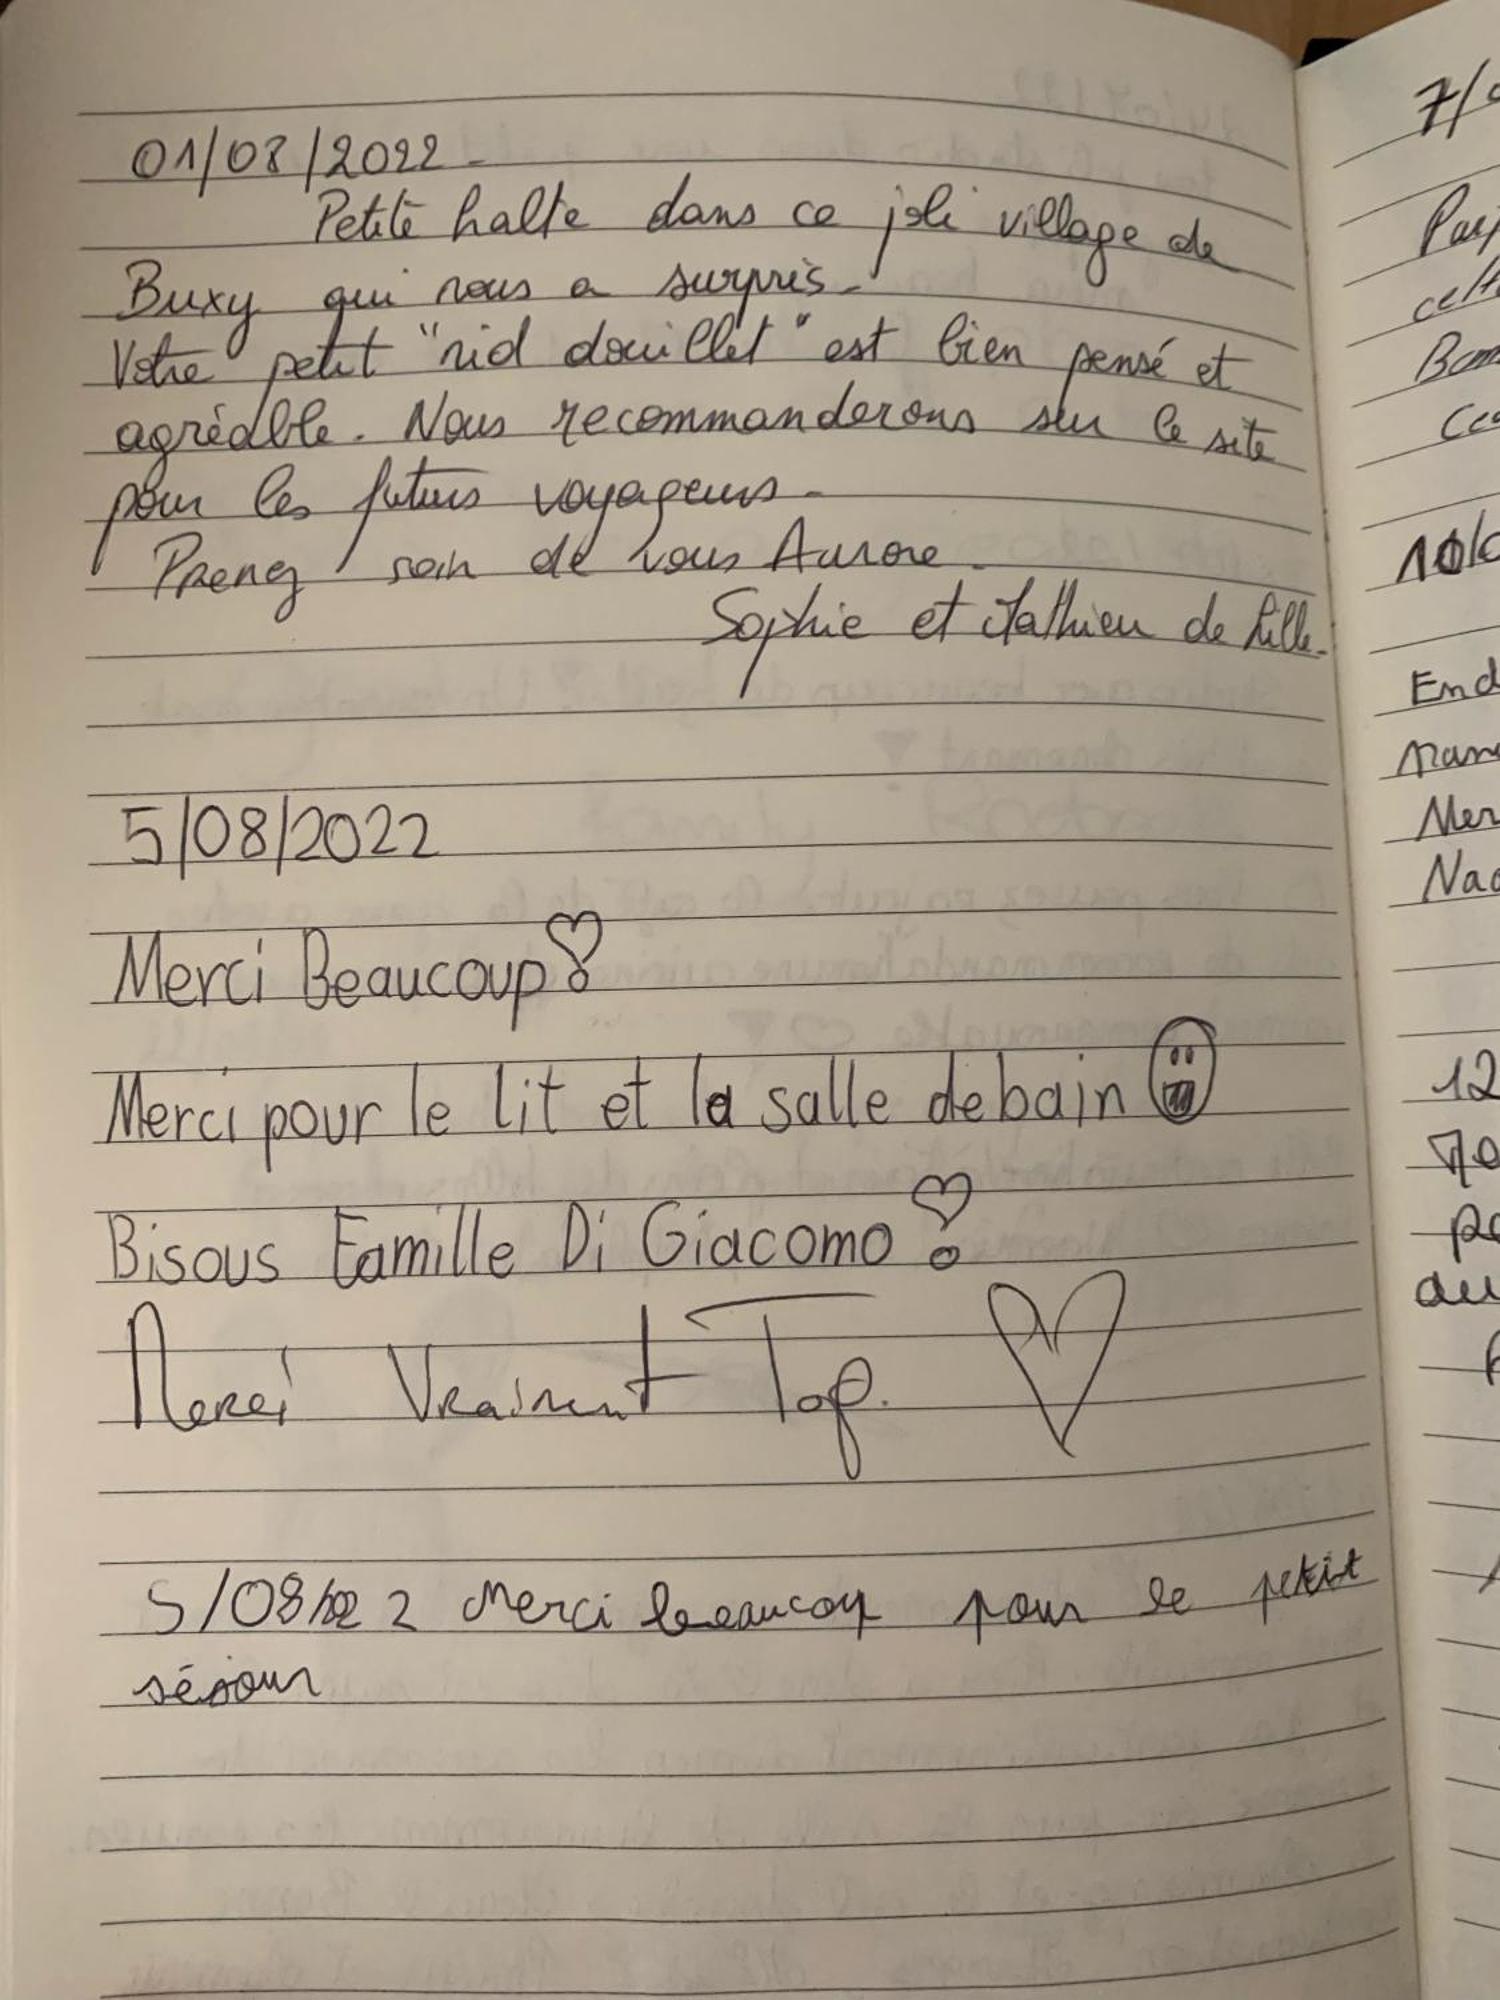 01/08/2022.
Petite halte dans ce joli village de
Buxy qui nous a surpris.
Votre petit "nid douillet" est bien pensé et
agréable. Nous recommanderons sur le site
pour les futurs voyageurs.
Prenez soin de vous Aurore.
Sophie et Mathieu de Lille.
5/08/2022
Merci Beaucoup!
Merci pour le lit et la salle de bain
Bisous Famille Di Giacomo!
Merci Vraiment Top.
5/08/22 Merci beaucoup pour le petit
séjour
7/
10/
End
Mer
12